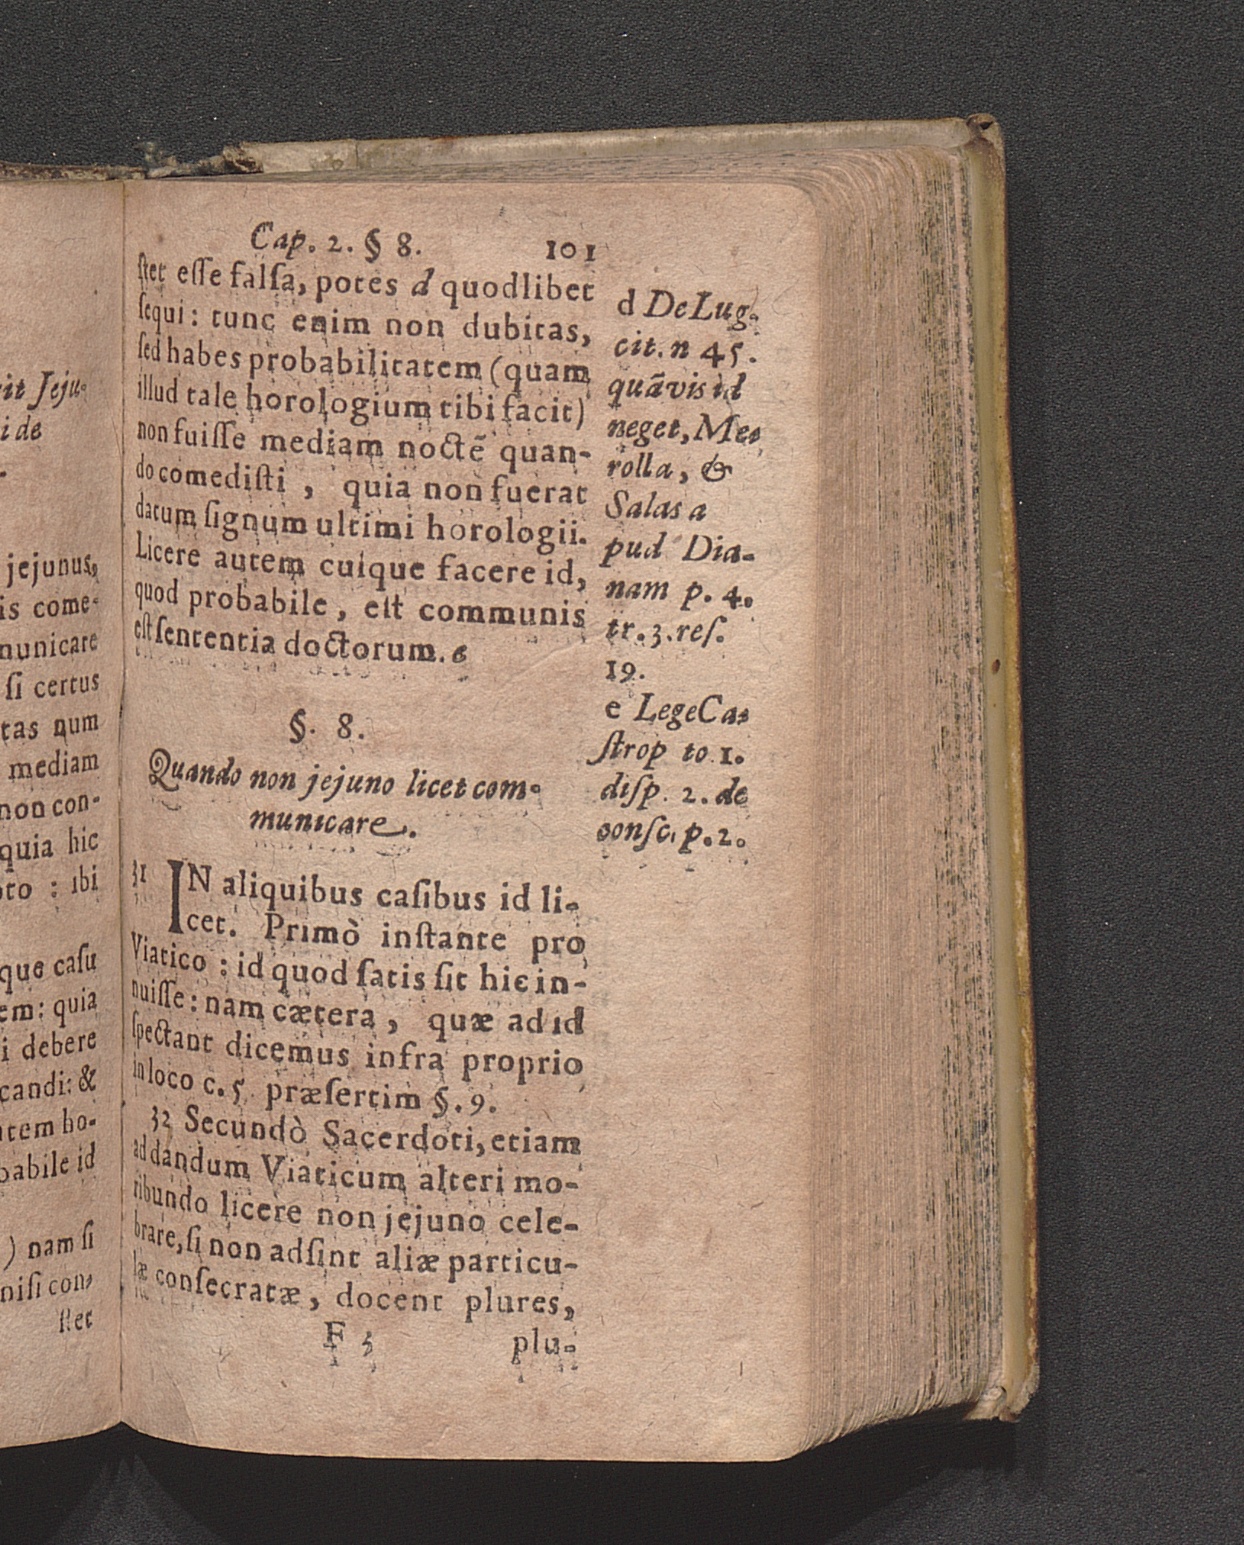 it Jeju-
i de
jejunus,
is come-
nunicare
si certus
tas num
mediam
non con-
quia hic
oto : ibi
que casu
em: quia
i debere
candi: &
ntem ho-
babile id
) nam si
nisi con-
stet
Cap. 2. § 8. 101
stet esse falsa, potes d quodlibet
sequi: tunc enim non dubitas,
sed habes probabilitatem (quam
illud tale horologium tibi facit)
non fuisse mediam noctē quan-
do comedisti , quia non fuerat
datum signum ultimi horologii.
Licere autem cuique facere id,
quod probabile, est communis
est sententia doctorum. e
§. 8.
Quando non jejuno licet com-
municare.
31 IN aliquibus casibus id li-
cet. Primò instante pro
Viatico : id quod satis sit hic in-
nuisse: nam cætera , quæ ad id
spectant dicemus infra proprio
in loco c. 5. præsertim §. 9.
32 Secundò Sacerdoti, etiam
ad dandum Viaticum alteri mo-
ribundo licere non jejuno cele-
brare, si non adsint aliæ particu-
læ consecratæ, docent plures,
F 3 plu-
d De Lug.
cit. n 45.
quāvis id
neget, Me-
rolla, &
Salas a
pud Dia-
nam p. 4.
tr. 3. res.
19.
e Lege Ca-
strop to 1.
disp. 2. de
consc. p. 2.